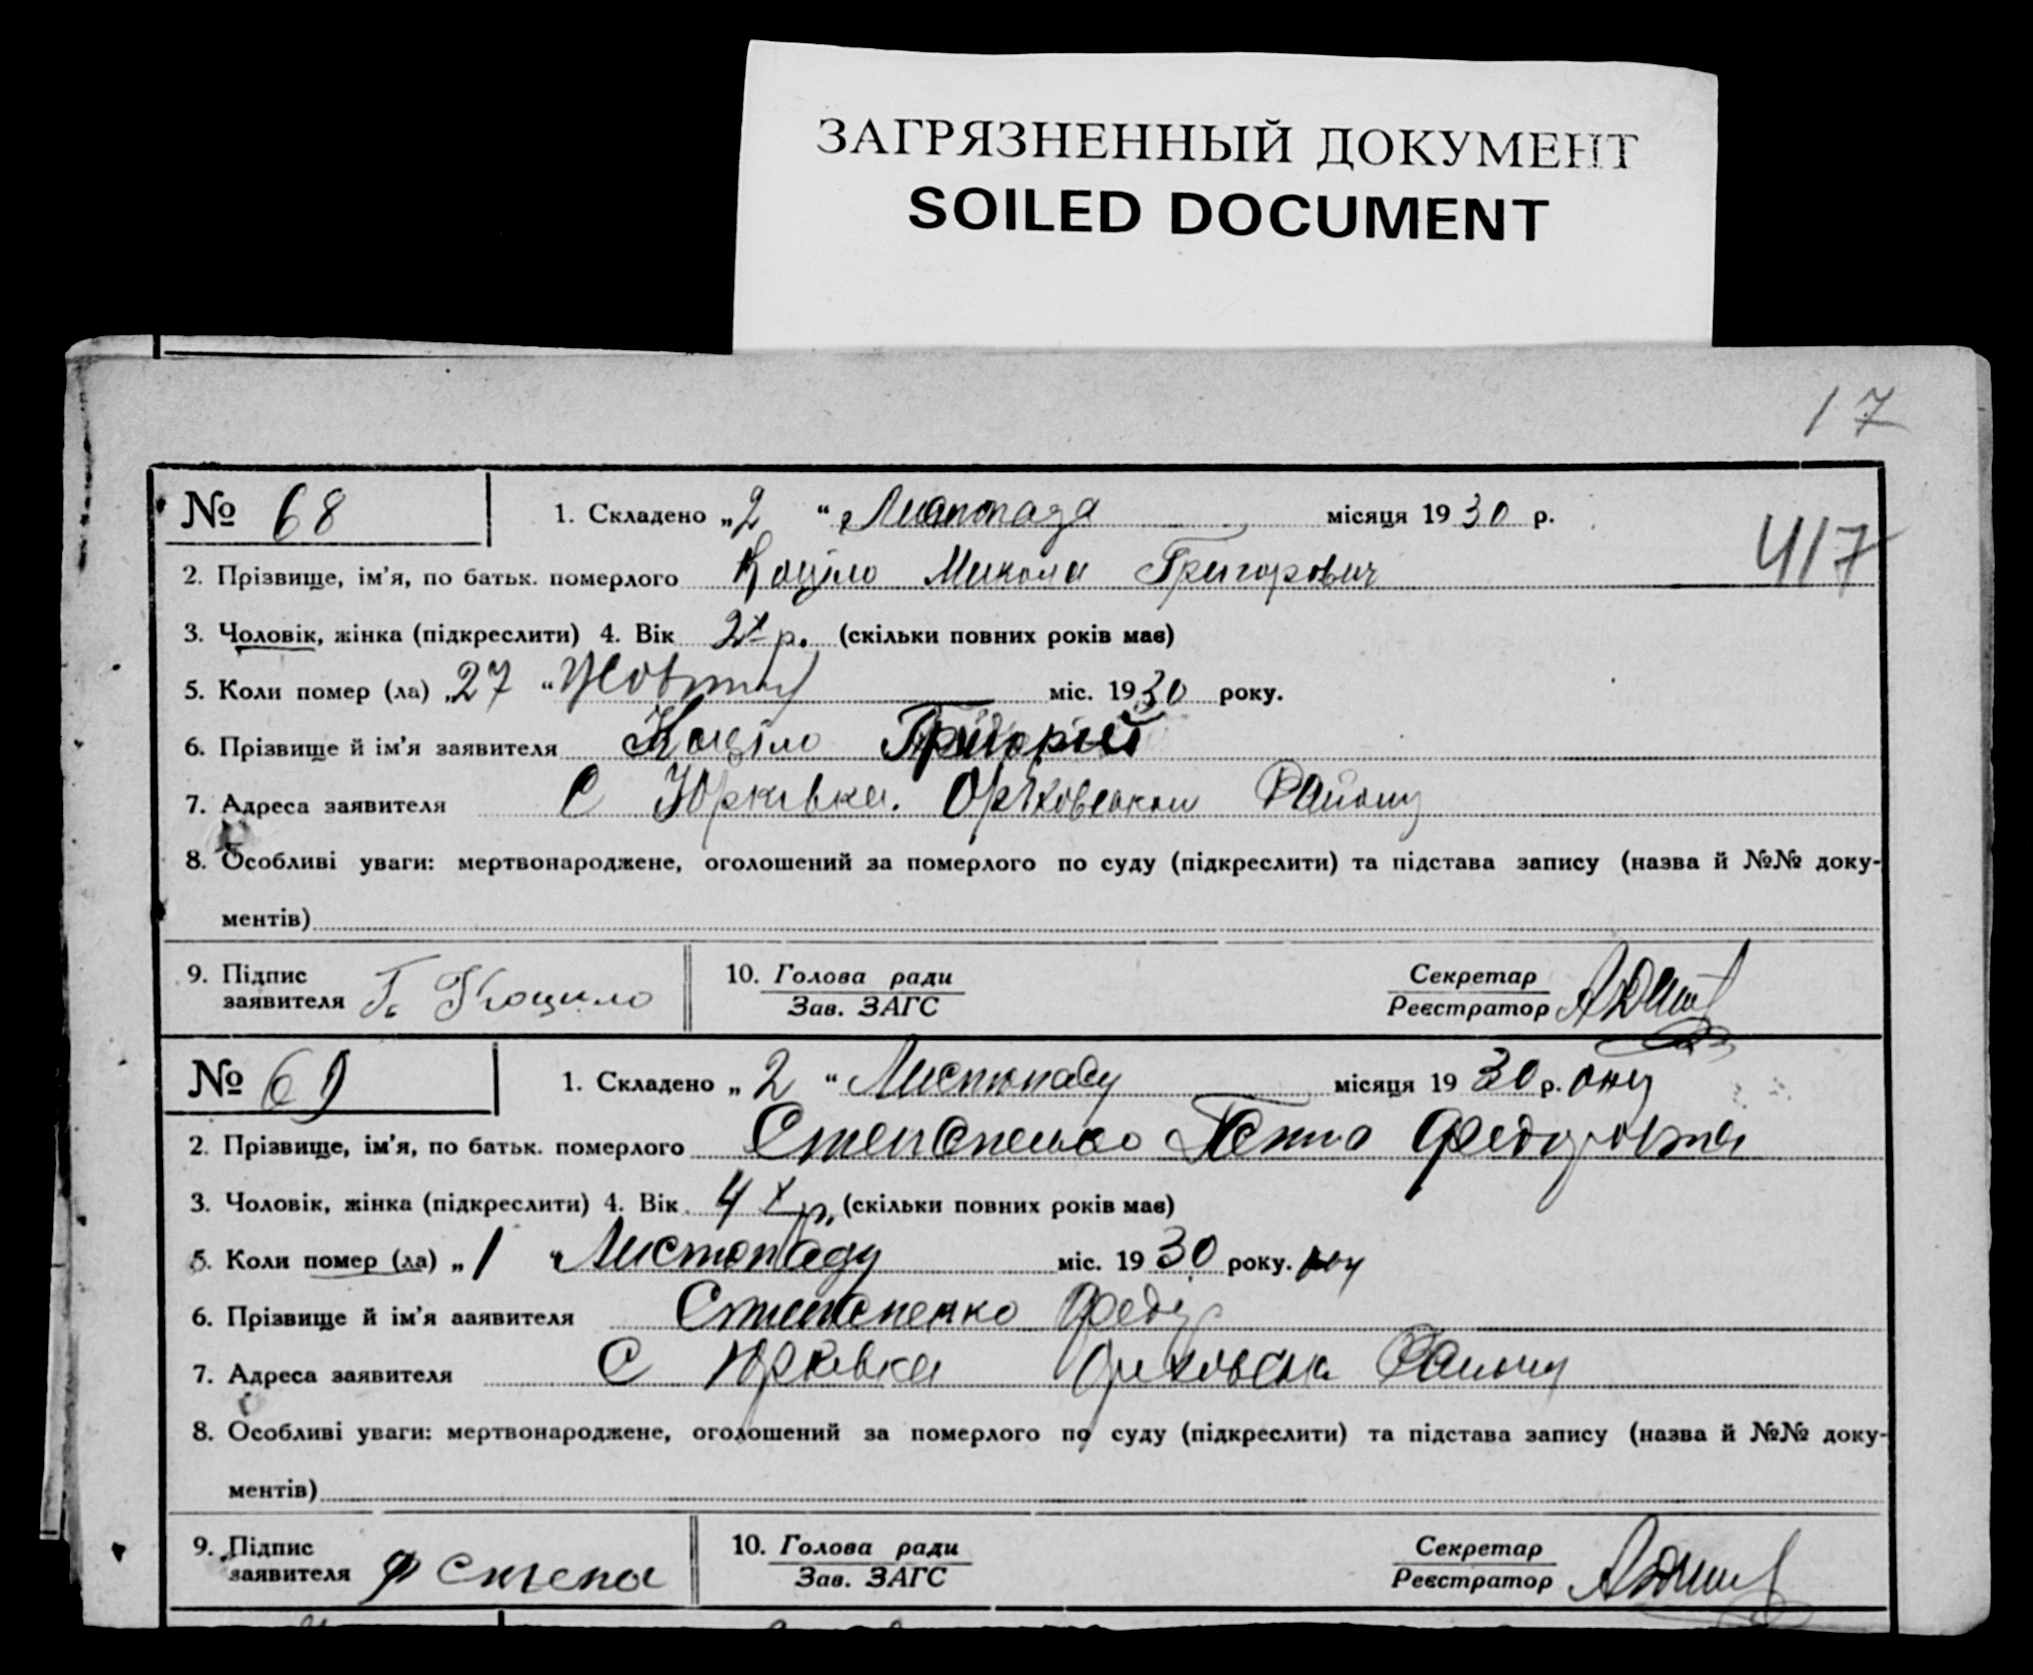 ЗАГРЯЗНЕННЫЙ ДОКУМЕНТ
SOILED DOCUMENT
17
№ 68 1. Складено „2“ Листопада місяця 1930 р.
417
2. Прізвище, ім'я, по батьк. померлого Коціло Микола Григорович
3. Чоловік, жінка (підкреслити) 4. Вік 2х р. (скільки повних років має)
5. Коли помер (ла) „27“ Жовтня міс. 1930 року.
6. Прізвище й ім'я заявителя Коціло Григорий
7. Адреса заявителя С Юрківка. Оріховского Району
8. Особливі уваги: мертвонароджене, оголошений за померлого по суду (підкреслити) та підстава запису (назва й №№ доку-
ментів)
9. Підпис заявителя Г. Коцило 10. Голова ради Секретар
Зав. ЗАГС Реєстратор
№ 69 1. Складено „2“ Листопаду місяця 1930 р.
2. Прізвище, ім'я, по батьк. померлого Степаненко Федоровна
3. Чоловік, жінка (підкреслити) 4. Вік 4х р. (скільки повних років має)
5. Коли помер (ла) „1“ Листопаду міс. 1930 року.
6. Прізвище й ім'я заявителя Степаненко Федур
7. Адреса заявителя С Юрківка Оріховська Району
8. Особливі уваги: мертвонароджене, оголошений за померлого по суду (підкреслити) та підстава запису (назва й №№ доку-
ментів)
9. Підпис заявителя Ф Степа 10. Голова ради Секретар
Зав. ЗАГС Реєстратор